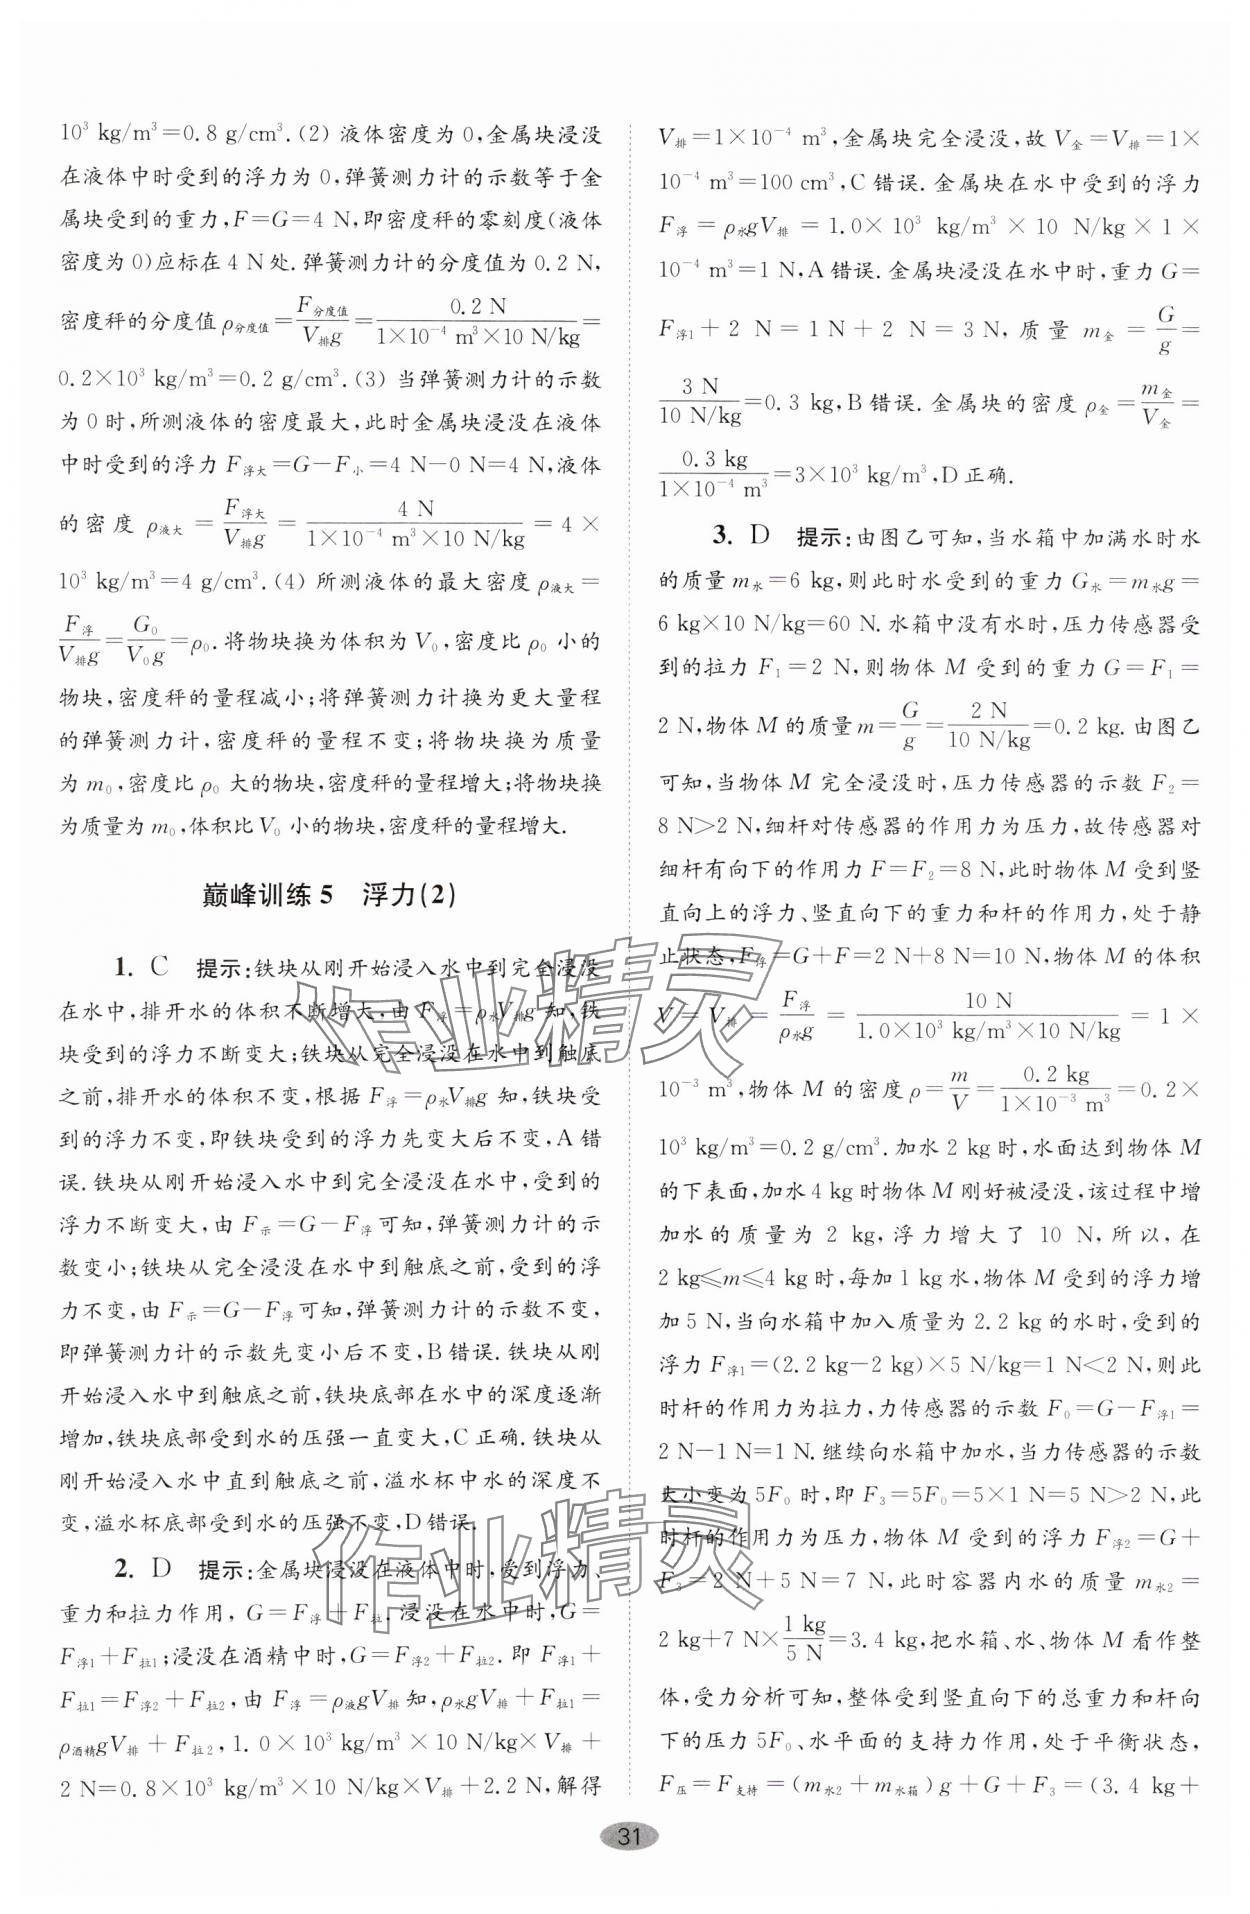 10³ kg/m³=0.8 g/cm³.(2) 液体密度为0,金属块浸没
在液体中时受到的浮力为0,弹簧测力计的示数等于金
属块受到的重力,F=G=4 N,即密度秤的零刻度(液体
密度为0)应标在4 N处.弹簧测力计的分度值为0.2 N,
密度秤的分度值ρ分度值=F分度值/V排g=0.2 N/(1×10⁻⁴ m³×10 N/kg)=
0.2×10³ kg/m³=0.2 g/cm³.(3) 当弹簧测力计的示数
为0时,所测液体的密度最大,此时金属块浸没在液体
中时受到的浮力F浮大=G-F小=4 N-0 N=4 N,液体
的密度 ρ液大=F浮大/V排g=4 N/(1×10⁻⁴ m³×10 N/kg)=4×
10³ kg/m³=4 g/cm³.(4) 所测液体的最大密度ρ液大=
F浮/V排g=G₀/V₀g=ρ₀.将物块换为体积为V₀,密度比ρ₀小的
物块,密度秤的量程减小;将弹簧测力计换为更大量程
的弹簧测力计,密度秤的量程不变;将物块换为质量
为m₀,密度比ρ₀大的物块,密度秤的量程增大;将物块换
为质量为m₀,体积比V₀小的物块,密度秤的量程增大.
巅峰训练5 浮力(2)
1. C 提示:铁块从刚开始浸入水中到完全浸没
在水中,排开水的体积不断增大,由F浮=ρ水V排g知,铁
块受到的浮力不断变大;铁块从完全浸没在水中到触底
之前,排开水的体积不变,根据F浮=ρ水V排g知,铁块受
到的浮力不变,即铁块受到的浮力先变大后不变,A错
误.铁块从刚开始浸入水中到完全浸没在水中,受到的
浮力不断变大,由F示=G-F浮可知,弹簧测力计的示
数变小;铁块从完全浸没在水中到触底之前,受到的浮
力不变,由F示=G-F浮可知,弹簧测力计的示数不变,
即弹簧测力计的示数先变小后不变,B错误.铁块从刚
开始浸入水中到触底之前,铁块底部在水中的深度逐渐
增加,铁块底部受到水的压强一直变大,C正确.铁块从
刚开始浸入水中直到触底之前,溢水杯中水的深度不
变,溢水杯底部受到水的压强不变,D错误.
2. D 提示:金属块浸没在液体中时,受到浮力、
重力和拉力作用,G=F浮+F拉.浸没在水中时,G=
F浮1+F拉1;浸没在酒精中时,G=F浮2+F拉2.即F浮1+
F拉1=F浮2+F拉2,由F浮=ρ液gV排知,ρ水gV排+F拉1=
ρ酒精gV排+F拉2,1.0×10³ kg/m³×10 N/kg×V排+
2 N=0.8×10³ kg/m³×10 N/kg×V排+2.2 N,解得
V排=1×10⁻⁴ m³,金属块完全浸没,故V金=V排=1×
10⁻⁴ m³=100 cm³,C错误.金属块在水中受到的浮力
F浮=ρ水gV排=1.0×10³ kg/m³×10 N/kg×1×
10⁻⁴ m³=1 N,A错误.金属块浸没在水中时,重力G=
F浮1+2 N=1 N+2 N=3 N,质量m金=G/g=
3 N/(10 N/kg)=0.3 kg,B错误.金属块的密度ρ金=m金/V金=
0.3 kg/(1×10⁻⁴ m³)=3×10³ kg/m³,D正确.
3. D 提示:由图乙可知,当水箱中加满水时水
的质量m水=6 kg,则此时水受到的重力G水=m水g=
6 kg×10 N/kg=60 N.水箱中没有水时,压力传感器受
到的拉力F₁=2 N,则物体M受到的重力G=F₁=
2 N,物体M的质量m=G/g=2 N/(10 N/kg)=0.2 kg.由图乙
可知,当物体M完全浸没时,压力传感器的示数F₂=
8 N>2 N,细杆对传感器的作用力为压力,故传感器对
细杆有向下的作用力F=F₂=8 N,此时物体M受到竖
直向上的浮力、竖直向下的重力和杆的作用力,处于静
止状态,F浮=G+F=2 N+8 N=10 N,物体M的体积
V=V排=F浮/ρ水g=10 N/(1.0×10³ kg/m³×10 N/kg)=1×
10⁻³ m³,物体M的密度ρ=m/V=0.2 kg/(1×10⁻³ m³)=0.2×
10³ kg/m³=0.2 g/cm³.加水2 kg时,水面达到物体M
的下表面,加水4 kg时物体M刚好被浸没,该过程中增
加水的质量为2 kg,浮力增大了10 N,所以,在
2 kg≤m≤4 kg时,每加1 kg水,物体M受到的浮力增
加5 N,当向水箱中加入质量为2.2 kg的水时,受到的
浮力F浮1=(2.2 kg-2 kg)×5 N/kg=1 N<2 N,则此
时杆的作用力为拉力,力传感器的示数F₀=G-F浮1=
2 N-1 N=1 N.继续向水箱中加水,当力传感器的示数
大小变为5F₀时,即F₃=5F₀=5×1 N=5 N>2 N,此
时杆的作用力为压力,物体M受到的浮力F浮2=G+
F₃=2 N+5 N=7 N,此时容器内水的质量m水2=
2 kg+7 N×1 kg/5 N=3.4 kg,把水箱、水、物体M看作整
体,受力分析可知,整体受到竖直向下的总重力和杆向
下的压力5F₀、水平面的支持力作用,处于平衡状态,
F压=F支持=(m水2+m水箱)g+G+F₃=(3.4 kg+
31
作业精灵
作业精灵